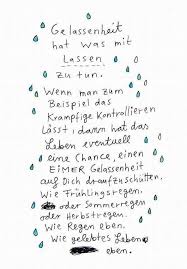 Gelassenheit
hat was mit
Lassen
zu tun.
Wenn man zum
Beispiel das
krampfige Kontrollieren
lässt, dann hat das
Leben eventuell
eine Chance, einen
EiMER Gelassenheit
auf Dich draufzuschütten.
Wie Frühlingsregen.
oder Sommerregen
oder Herbstregen.
Wie Regen eben.
Wie gelebtes Leben
eben.